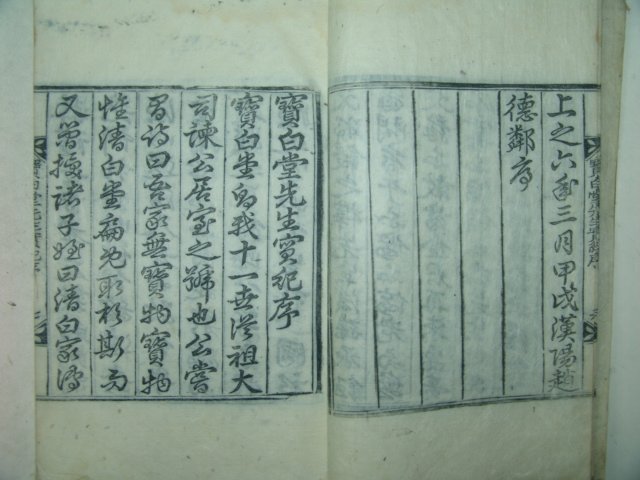 上之六年三月甲戌漢陽趙
德鄰序
寶白堂先生實紀序
寶白堂我十一世從祖大
司諫公居室之號也公嘗
有詩曰吾家無寶物寶物
惟清白堂扁取於斯而
又嘗授諸子姪曰清白家傳
寶白堂先生實紀序